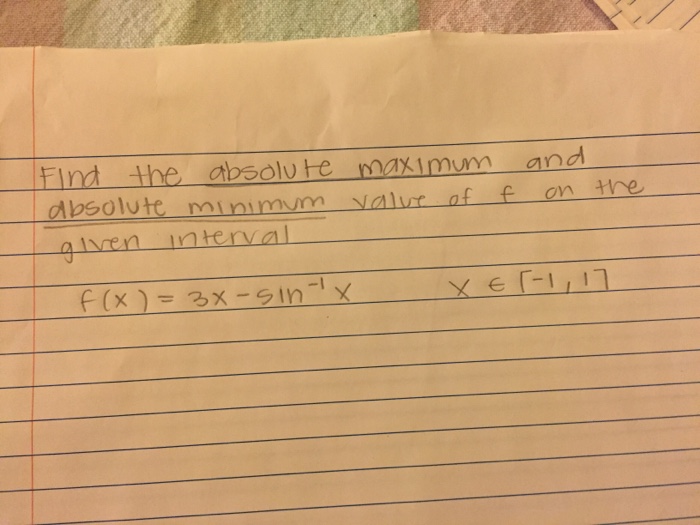 Find the absolute maximum and
absolute minimum value of f on the
given interval
f(x) = 3x - sin⁻¹ x x ∈ [-1, 1]